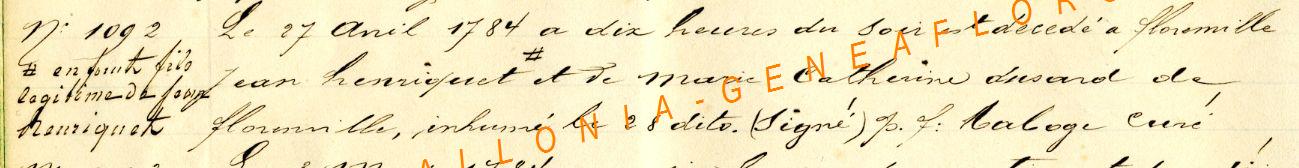 N° 1092 Le 27 Avril 1784 a dix heures du soir est décédé a florenville
# enfant fils Jean henriquet # et de marie Catherine dusard de
legitime de jean
henriquet florenville, inhumé le 28 dito. (Signé) p. f: Laloge Curé
ALLONIA-GENEAFLOR